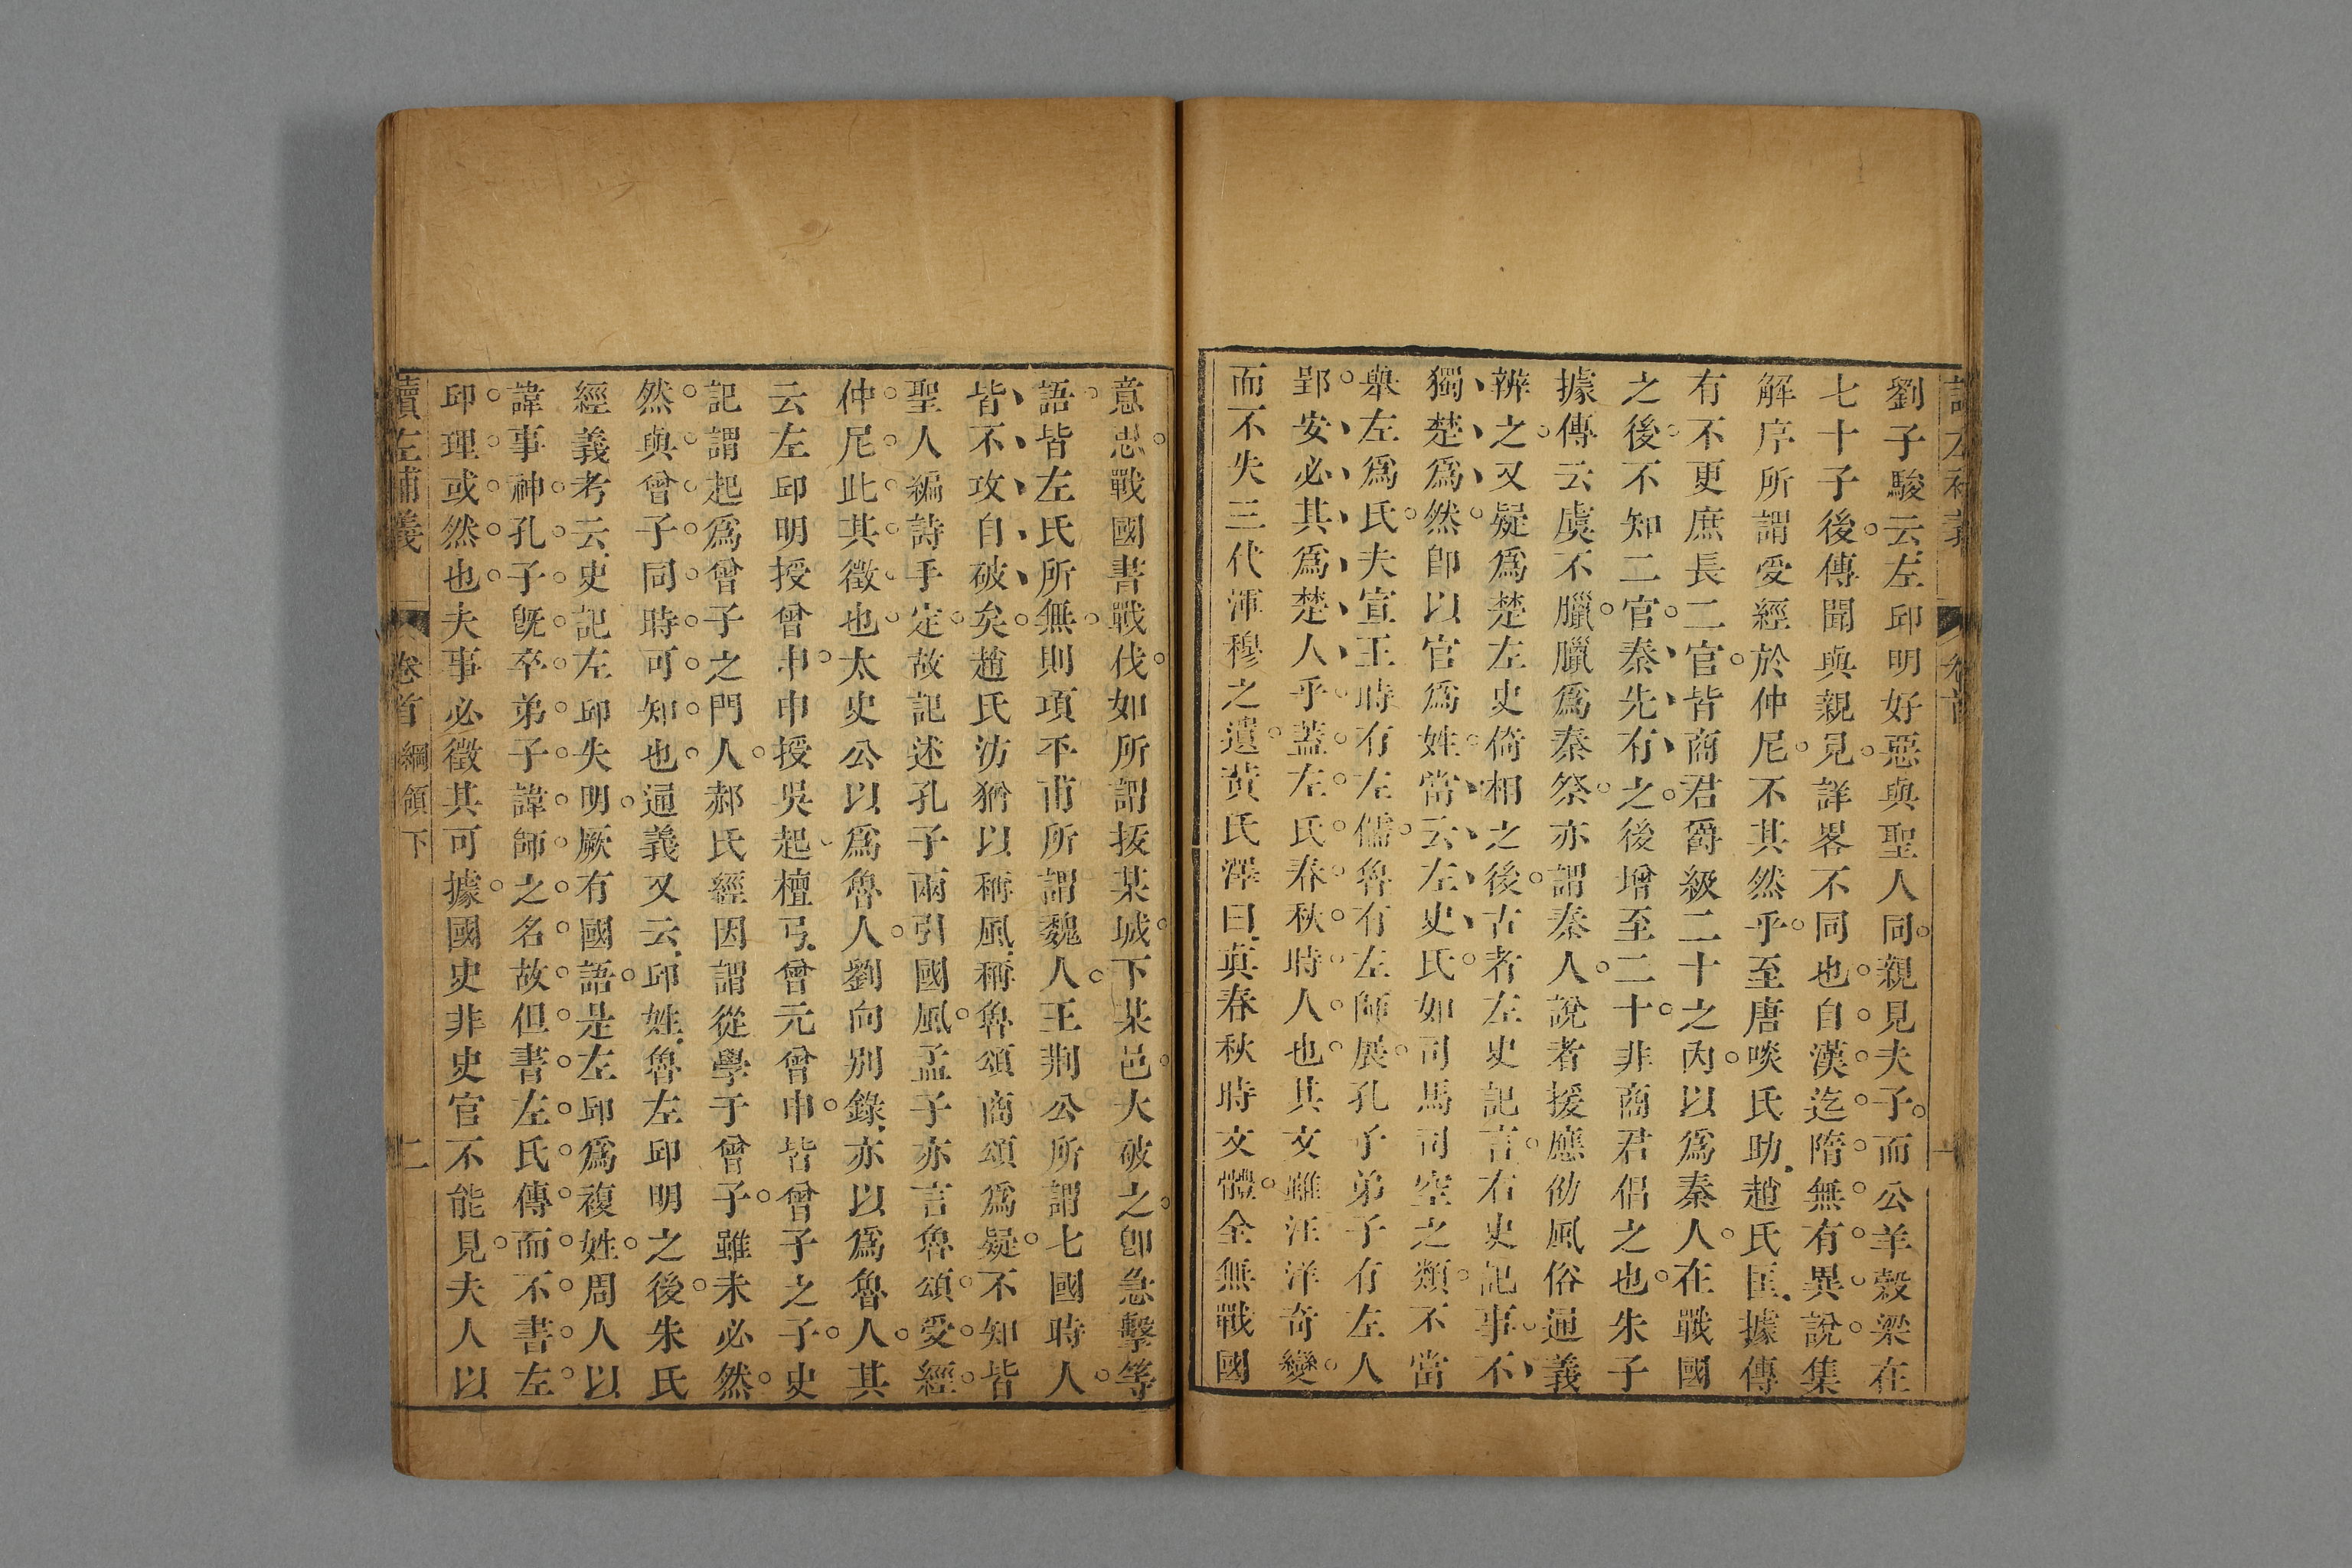 劉子駿云左邱明好惡與聖人同親見夫子而公羊穀梁在
七十子後傳聞與親見詳畧不同也自漢迄隋無有異說集
解序所謂受經於仲尼不其然乎至唐啖氏助趙氏匡據傳
有不更庶長二官皆商君爵級二十之內以爲秦人在戰國
之後不知二官秦先有之後增至二十非商君侶之也朱子
據傳云虞不臘臘爲秦祭亦謂秦人說者援應劭風俗通義
辨之又疑爲楚左史倚相之後古者左史記言右史記事不
獨楚爲然卽以官爲姓當云左史氏如司馬司空之類不當
單左爲氏夫宣王時有左儒魯有左師展孔子弟子有左人
郢安必其爲楚人乎蓋左氏春秋時人也其文雖汪洋奇變
而不失三代渾穆之遺黃氏澤曰眞春秋時文體全無戰國
意思戰國書戰伐如所謂拔某城下某邑大破之卽急擊等
語皆左氏所無則項平甫所謂魏人王荆公所謂七國時人
皆不攻自破矣趙氏汸猶以稱風稱魯頌商頌爲疑不知皆
聖人編詩手定故記述孔子兩引國風孟子亦言魯頌受經
仲尼此其徵也太史公以爲魯人劉向別錄亦以爲魯人其
云左邱明授曾申申授吳起檀弓曾元曾申皆曾子之子史
記謂起爲曾子之門人郝氏經因謂從學于曾子雖未必然
然與曾子同時可知也通義又云邱姓魯左邱明之後朱氏
經義考云史記左邱失明厥有國語是左邱爲複姓周人以
諱事神孔子旣卒弟子諱師之名故但書左氏傳而不書左
邱理或然也夫事必徵其可據國史非史官不能見夫人以
讀左補義 卷首 綱領下 二